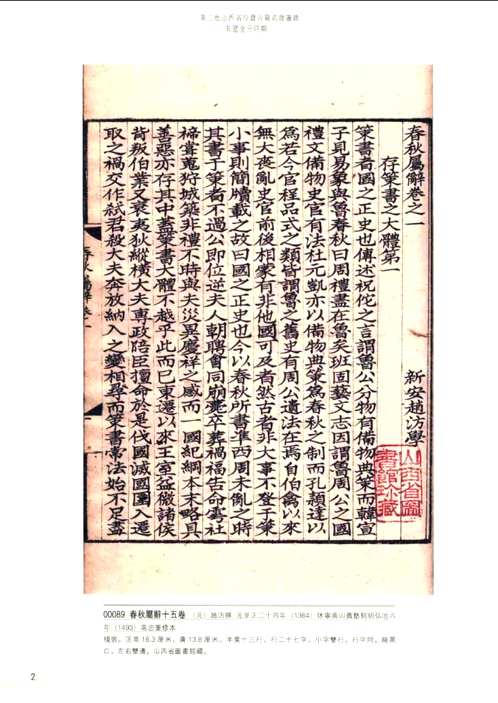 第二批山西省珍貴古籍名錄圖錄
春秋屬辭卷之一
新安趙汸學
存策書之大體第一
策書者國之正史也傳述祝佗之言謂魯公分物有備物典策而韓宣
子見易象與魯春秋曰周禮盡在魯矣班固藝文志因謂魯周公之國
禮文備物史官有法杜元凱亦以備物典策為春秋之制而孔穎達以
為若今官程品式之類皆謂魯之舊史有周公遺法在焉自伯禽以來
無大喪亂史官前後相蒙有非他國可及者然古者非大事不登于策
小事則簡牘載之故曰國之正史也今以春秋所書準西周未亂之時
其書于策者不過公即位逆夫人朝聘會同崩薨卒葬禍福告命雩社
禘嘗蒐狩城築非禮不時與夫災異慶祥之感而一國紀綱本末略具
善惡亦存其中蓋策書大體不越乎此而已東遷以來王室益微諸侯
背叛伯業又衰夷狄縱橫大夫專政陪臣擅命於是伐國滅國圍入遷
取之禍交作弒君殺大夫奔放納入之變相尋而策書常法始不足盡
春秋屬辭卷一
山西省圖書館珍藏
00089 春秋屬辭十五卷 （元）趙汸撰 元至正二十四年（1364）休寧商山義塾刻明弘治六
年（1493）高忠重修本
綫裝。匡高18.3厘米，廣13.8厘米，半葉十三行，行二十七字，小字雙行，行字同，細黑
口，左右雙邊。山西省圖書館藏。
2